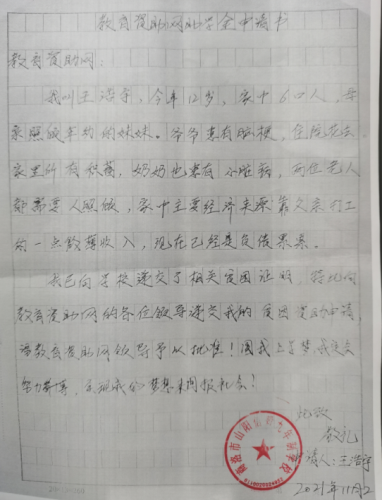 教育资助网助学金申请书
教育资助网：
我叫王浩宇，今年12岁，家中6口人，母
亲照顾年幼的妹妹。爷爷患有脑梗，住院花去
家里所有积蓄，奶奶也患有心脏病，两位老人
都需要人照顾，家中主要经济来源靠父亲打工
的一点微薄收入，现在已经是负债累累。
我已向学校递交了相关贫困证明，特此向
教育资助网的各位领导递交我的贫困资助申请，
请教育资助网领导予以批准！圆我上学梦，我
努力学习，实现我的梦想来回报社会！
此致
敬礼
申请人：王浩宇
2021年11月2